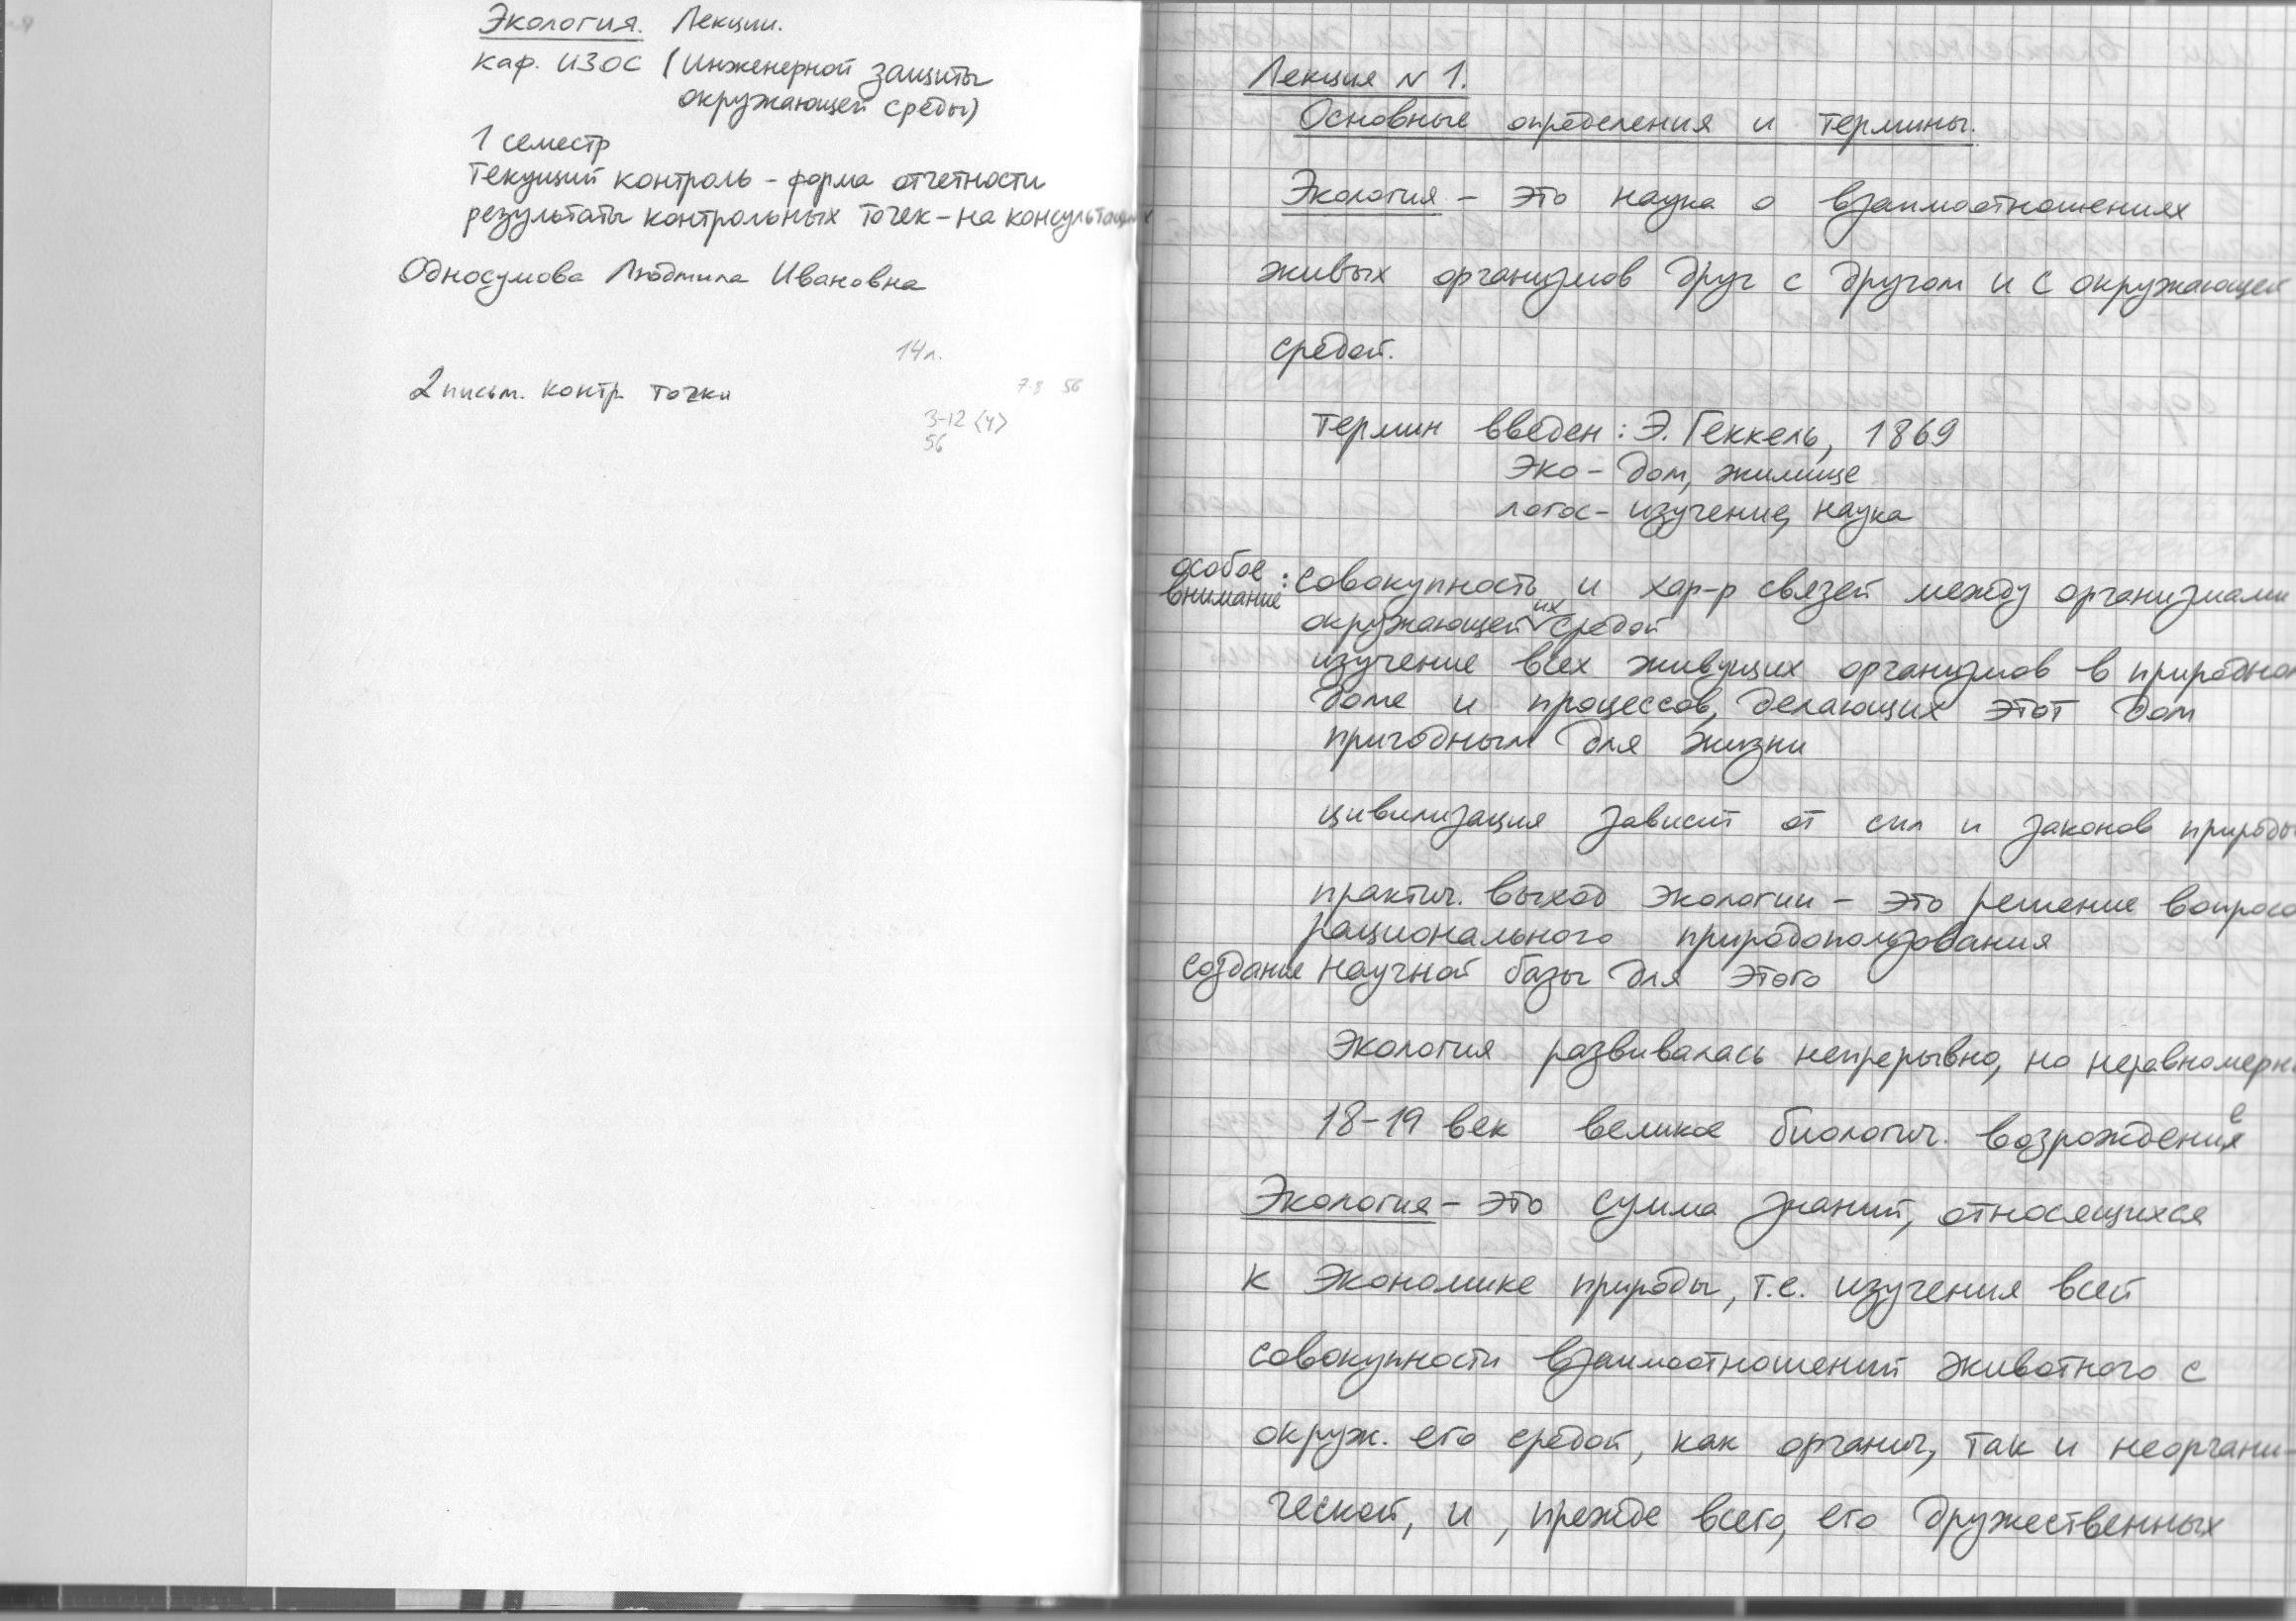 Экология. Лекции.
каф. ИЗОС (Инженерной защиты
окружающей среды)
1 семестр
Текущий контроль – форма отчетности
результаты контрольных точек – на консультациях
Односумова Людмила Ивановна
14л.
2 письм. контр. точки
7-8 56
3-12 (4)
56
Лекция N 1.
Основные определения и термины.
Экология – это наука о взаимоотношениях
живых организмов друг с другом и с окружающей
средой.
Термин введен: Э. Геккель, 1869
Эко – дом, жилище
логос – изучение, наука
особое
внимание: совокупность и хар-р связей между организмами
их
окружающей средой
изучение всех живущих организмов в природном
доме и процессов, делающих этот дом
пригодным для жизни
цивилизация зависит от сил и законов природы
практич. выход экологии – это решение вопроса
рационального природопользования
создание научной базы для этого
Экология развивалась непрерывно, но неравномерн
18-19 век великое биологич. возрождение
Экология – это сумма знаний, относящихся
к экономике природы, т.е. изучения всей
совокупности взаимоотношений животного с
окруж. его средой, как органич, так и неоргани-
ческой, и, прежде всего, его дружественных